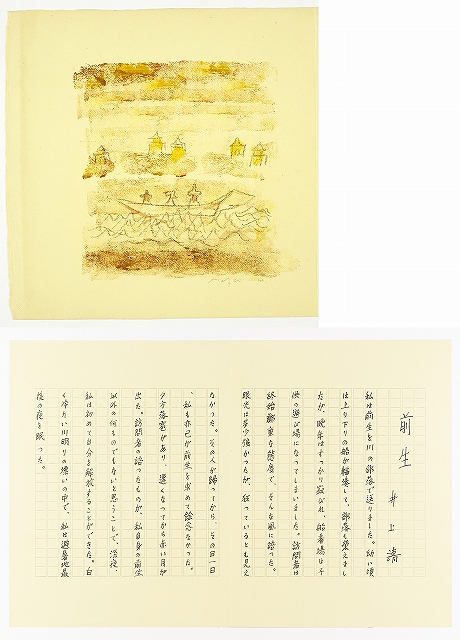 前生
井上靖
私は前生を川の部落で送りました。幼い頃
は上り下りの船が輻湊して、部落も栄えまし
たが、晩年はすっかり寂びれ、船着場は子
供の遊び場になってしまいました。訪問者は
終始鄭重な態度で、そんな風に語った。
眼光は多少強かったが、狂っているとも見え
なかった。その人が帰ってから、その日一日
、私も亦己が前生を求めて餘念なかった。
夕方落雷があり、遅くなってから赤い月が
出た。訪問者の語ったものが、私自身の前生
以外の何ものでもないと思うことで、深夜、
私は初めて自分を解放することができた。白
く冷たい川明りの漂いの中で、私は避暑地最
後の夜を眠った。